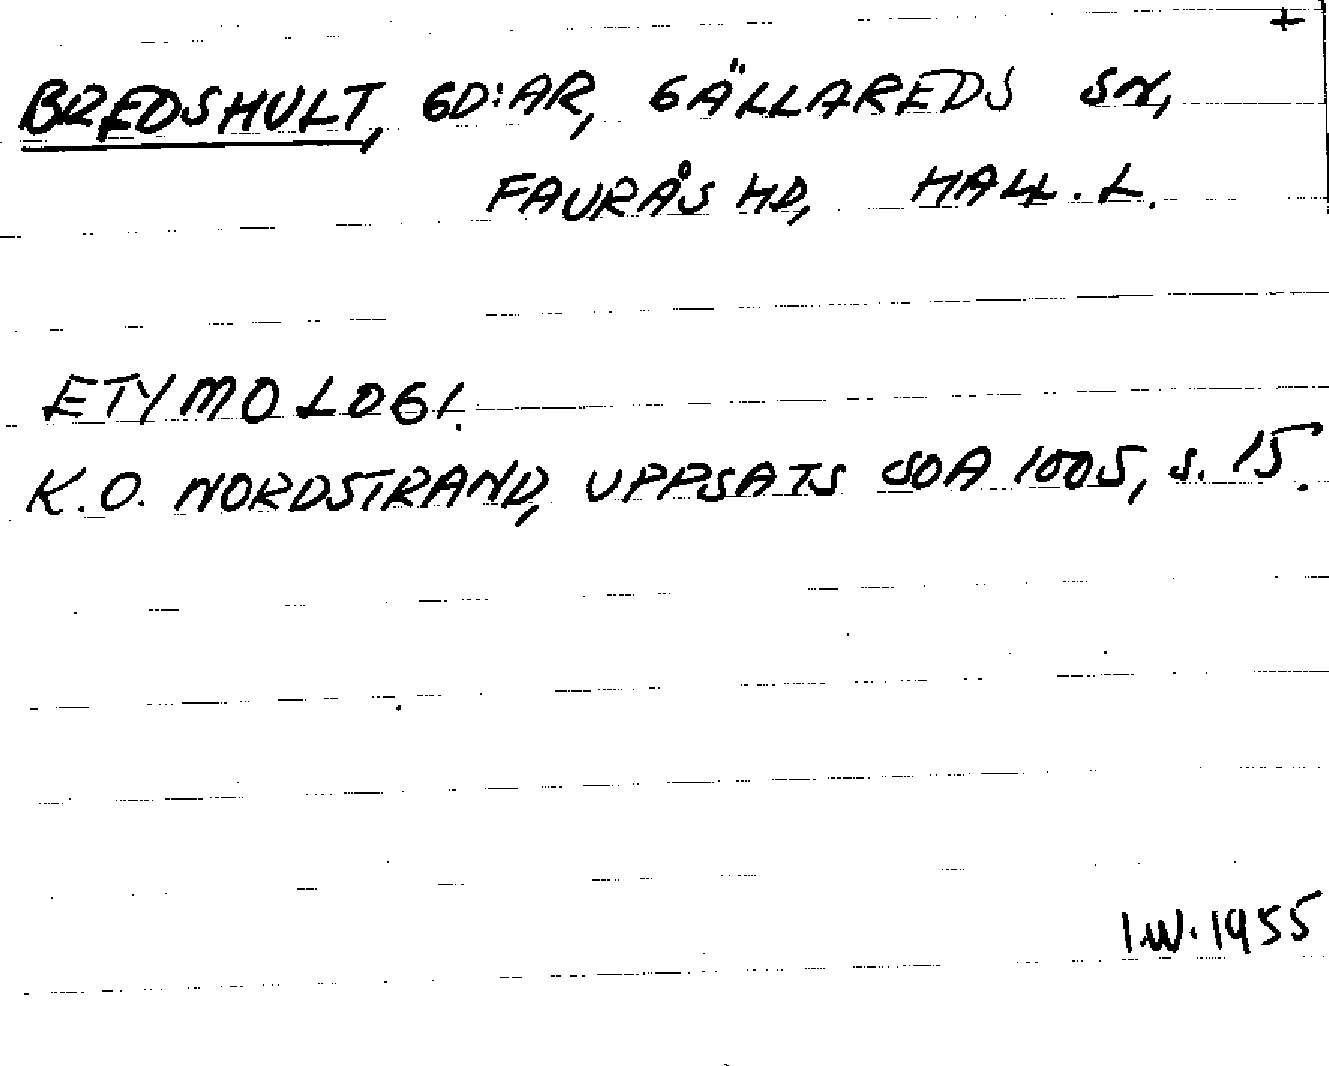 +
BREDSHULT, GD:AR, GÄLLAREDS SN,
FAURÅS HD, HALL. L.
ETYMOLOGI.
K.O. NORDSTRAND, UPPSATS SOA 1005, S. 15.
I.W. 1955